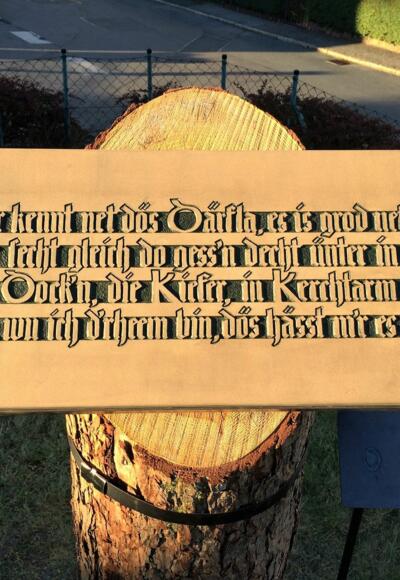 r kennt net dös Därfla, es is grod net
lecht gleich do gess'n decht ünter in
Dock'n, die Kiefer, in Kerrchtarm
wu ich d'rheem bin, dös hässt m'r es